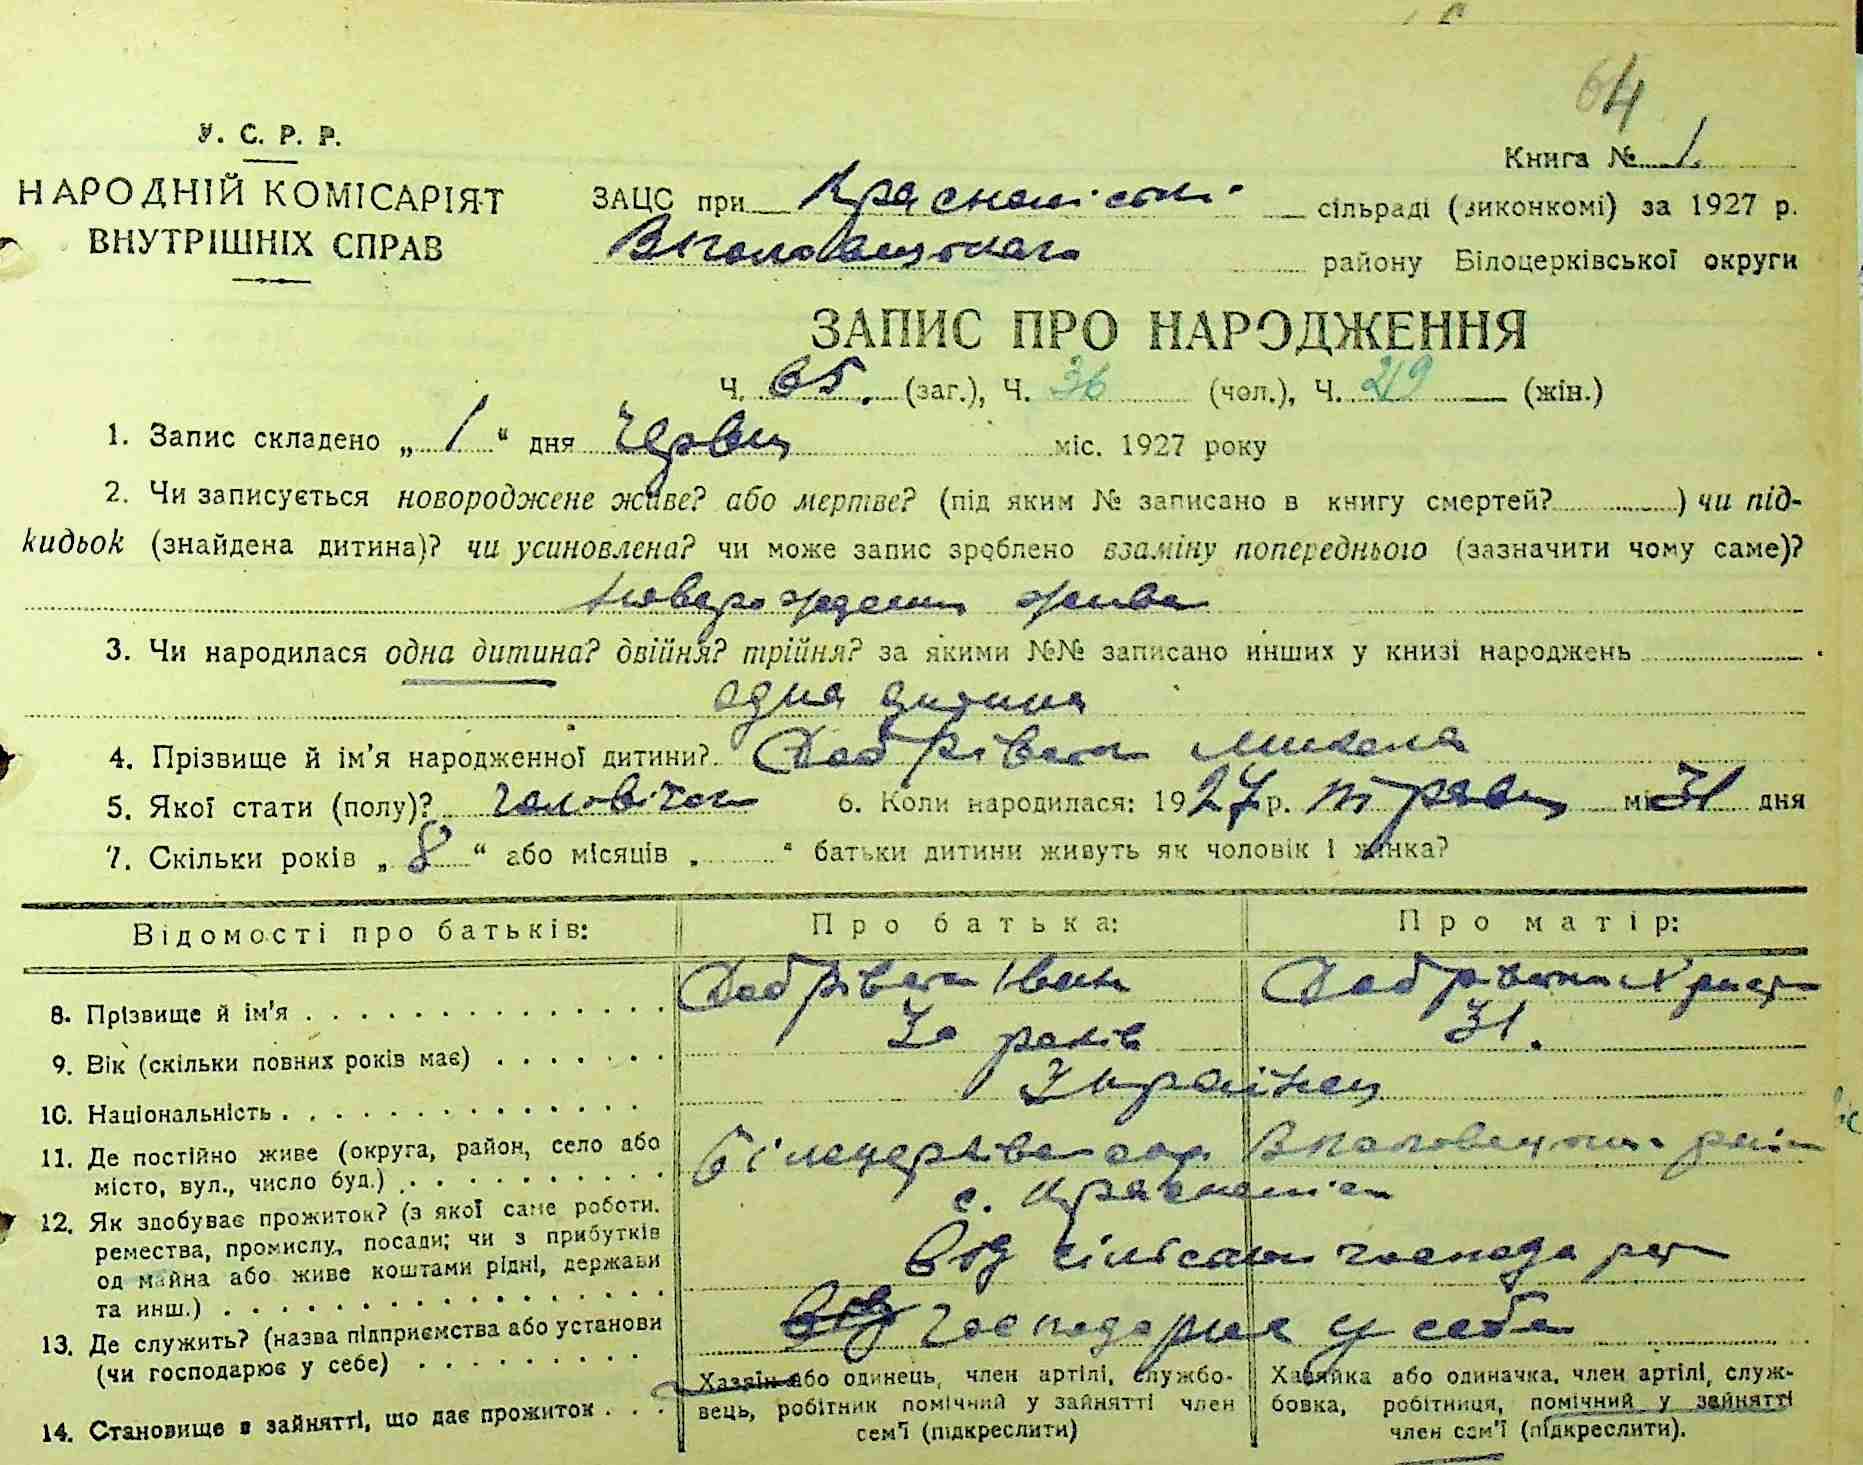 64
У. С. Р. Р.
Книга № 1.
НАРОДНІЙ КОМІСАРІЯТ
ВНУТРІШНІХ СПРАВ
ЗАЦС при Красноліській сільраді (виконкомі) за 1927 р.
району Білоцерківської округи
ЗАПИС ПРО НАРОДЖЕННЯ
Ч. 65. (заг.), Ч. 36 (чол.), Ч. 29 (жін.)
1. Запис складено „ 1 “ дня Червця міс. 1927 року
2. Чи записується новороджене живе? або мертве? (під яким № записано в книгу смертей? ) чи під-
кидьок (знайдена дитина)? чи усиновлена? чи може запис зроблено взаміну попереднього (зазначити чому саме)?
живе
3. Чи народилася одна дитина? двійня? трійня? за якими №№ записано инших у книзі народжень
одна дитина
4. Прізвище й ім'я народженної дитини? Добрівечір Микола
5. Якої стати (полу)? чоловічої 6. Коли народилася: 1927 р. травця мі 31 дня
7. Скільки років „ 8 “ або місяців „ “ батьки дитини живуть як чоловік і жінка?
Відомості про батьків: Про батька: Про матір:
8. Прізвище й ім'я Іван
9. Вік (скільки повних років має) 30 років 31.
10. Національність Українец
11. Де постійно живе (округа, район, село або
місто, вул., число буд.) с.
12. Як здобуває прожиток? (з якої саме роботи,
ремества, промислу, посади; чи з прибутків
од майна або живе коштами рідні, держави
та инш.) від сільского господарст
13. Де служить? (назва підприємства або установи
(чи господарює у себе) господарює у себе
14. Становище в зайнятті, що дає прожиток
Хазяїн або одинець, член артілі, службо-
вець, робітник помічний у зайнятті член
сем'ї (підкреслити)
Хазяйка або одиначка, член артілі, служ-
бовка, робітниця, помічний у зайнятті
член сем'ї (підкреслити).